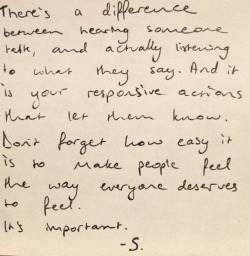 There's a difference
between hearing someone
talk, and actually listening
to what they say. And it
is your responsive actions
that let them know.
Don't forget how easy it
is to make people feel
the way everyone deserves
to feel.
It's important.
-S.